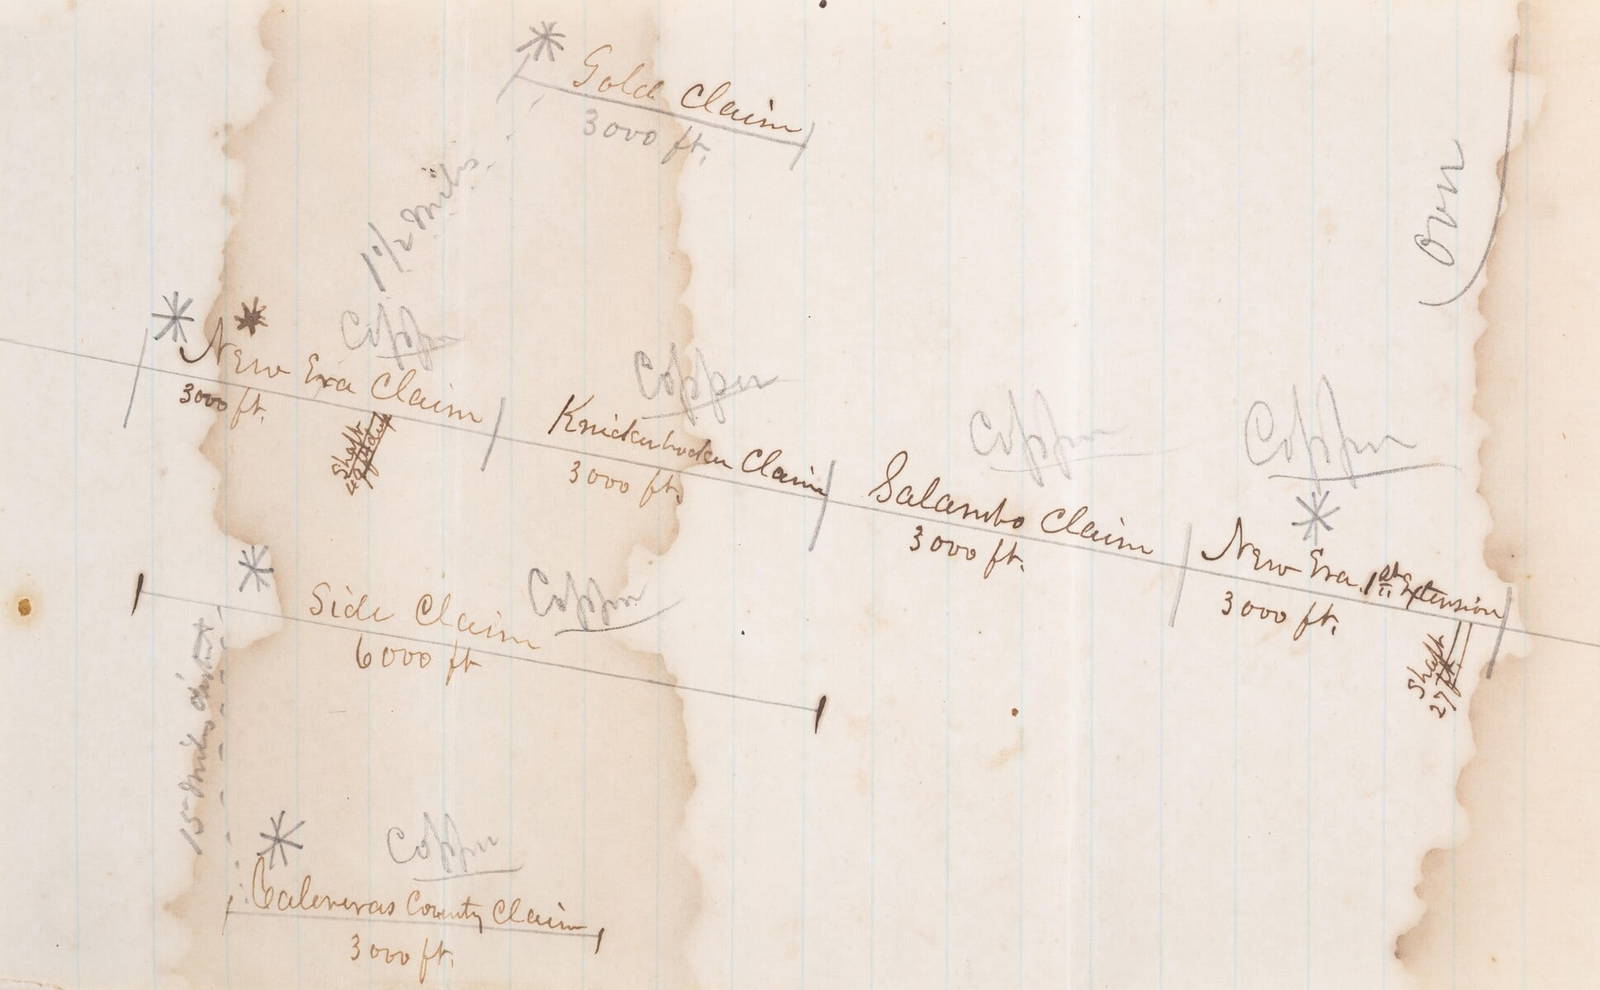 Gold Claim
3000 ft.
1 1/2 Miles
Over
Copper
New Era Claim
3000 ft.
Shaft
Copper
Knickerbocker Claim
3000 ft.
Copper
Salambo Claim
3000 ft.
Copper
New Era 1st Extension
3000 ft.
Shaft
27 ft.
Copper
Side Claim
6000 ft
15 Miles distant
Copper
Caleveras County Claim
3000 ft.